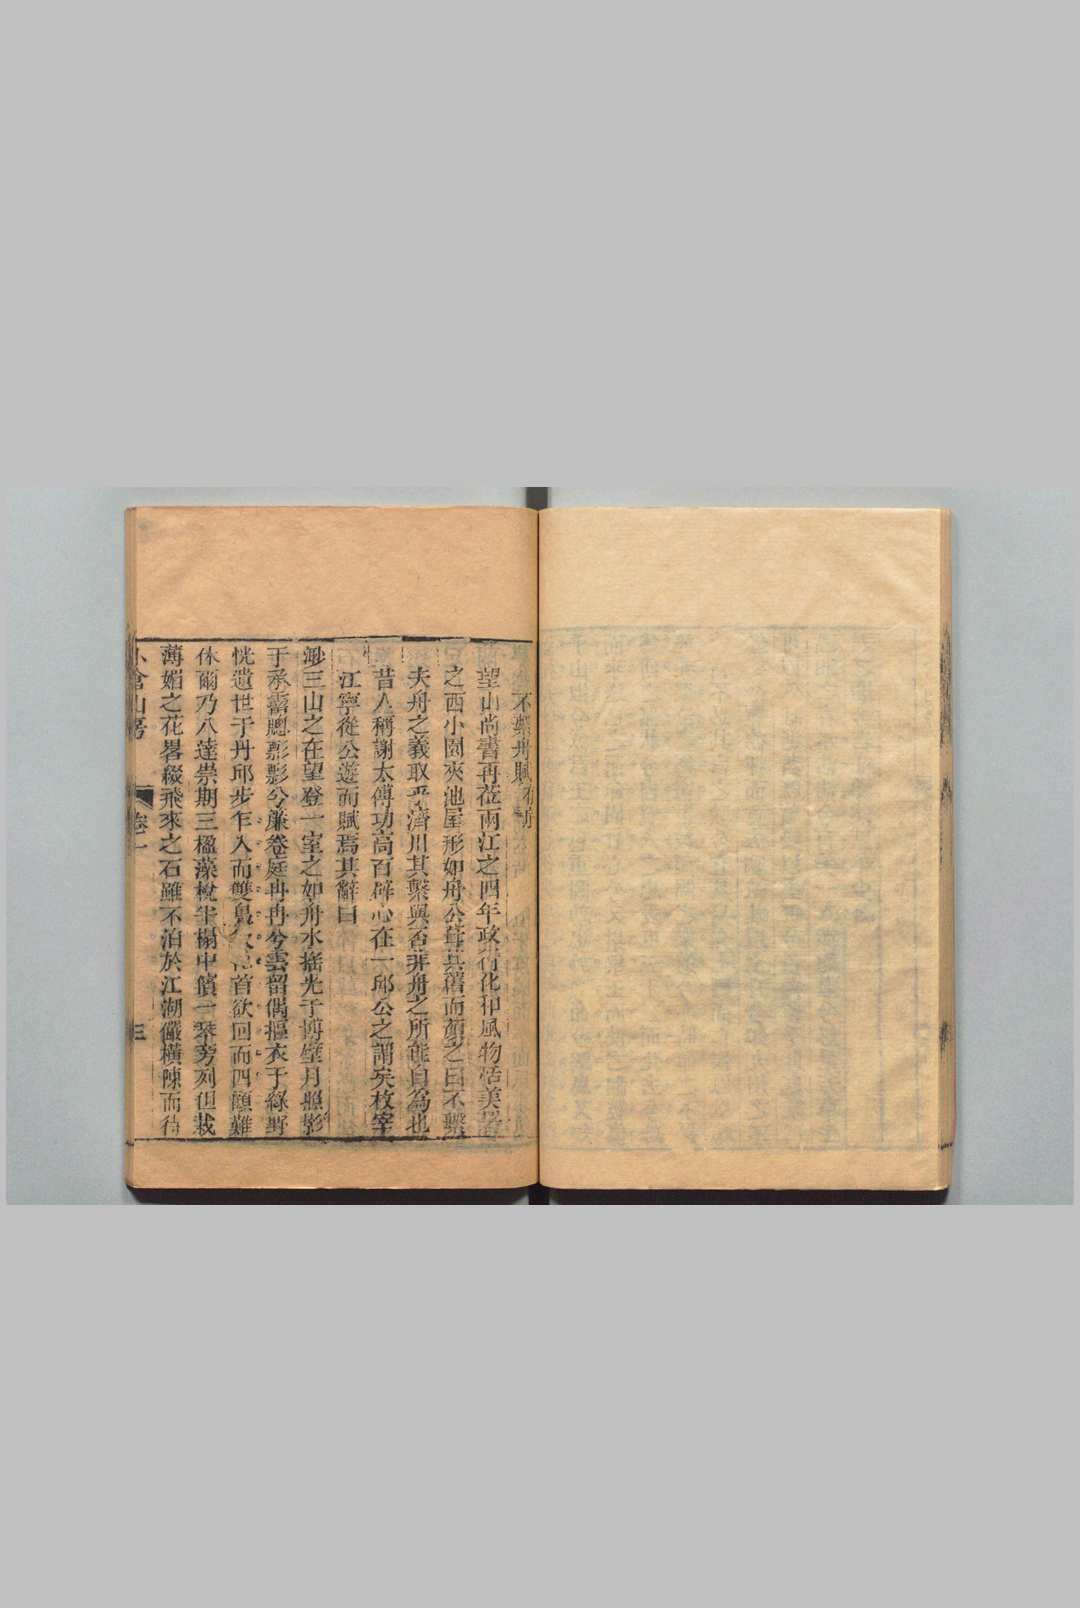 不繫舟賦有序
望山尚書再莅兩江之四年政行化和風物恬美署
之西小園夾池屋形如舟公葺其舊而顏之曰不繫
夫舟之義取乎濟川其繫與否非舟之所能自為也
昔人稱謝太傅功高百辟心在一邱公之謂矣枚宰
江寧從公遊而賦焉其辭曰
渺三山之在望登一室之如舟水搖光于博壁月照影
于承霤牕影影兮簾卷庭冉冉兮雲留偶摳衣于綠野
恍遺世于丹邱步乍入而雙首欲回而四顧難
休爾乃八達崇期三楹藻梲半榻中橫一琴旁列但栽
薄媚之花畧綴飛來之石雖不泊於江湖儼橫陳而待
小倉山房 卷一 三